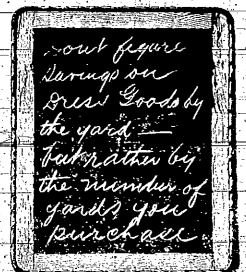 out figure
Savings on
Dress Goods by
the yard —
but rather by
the number of
yards you
purchase